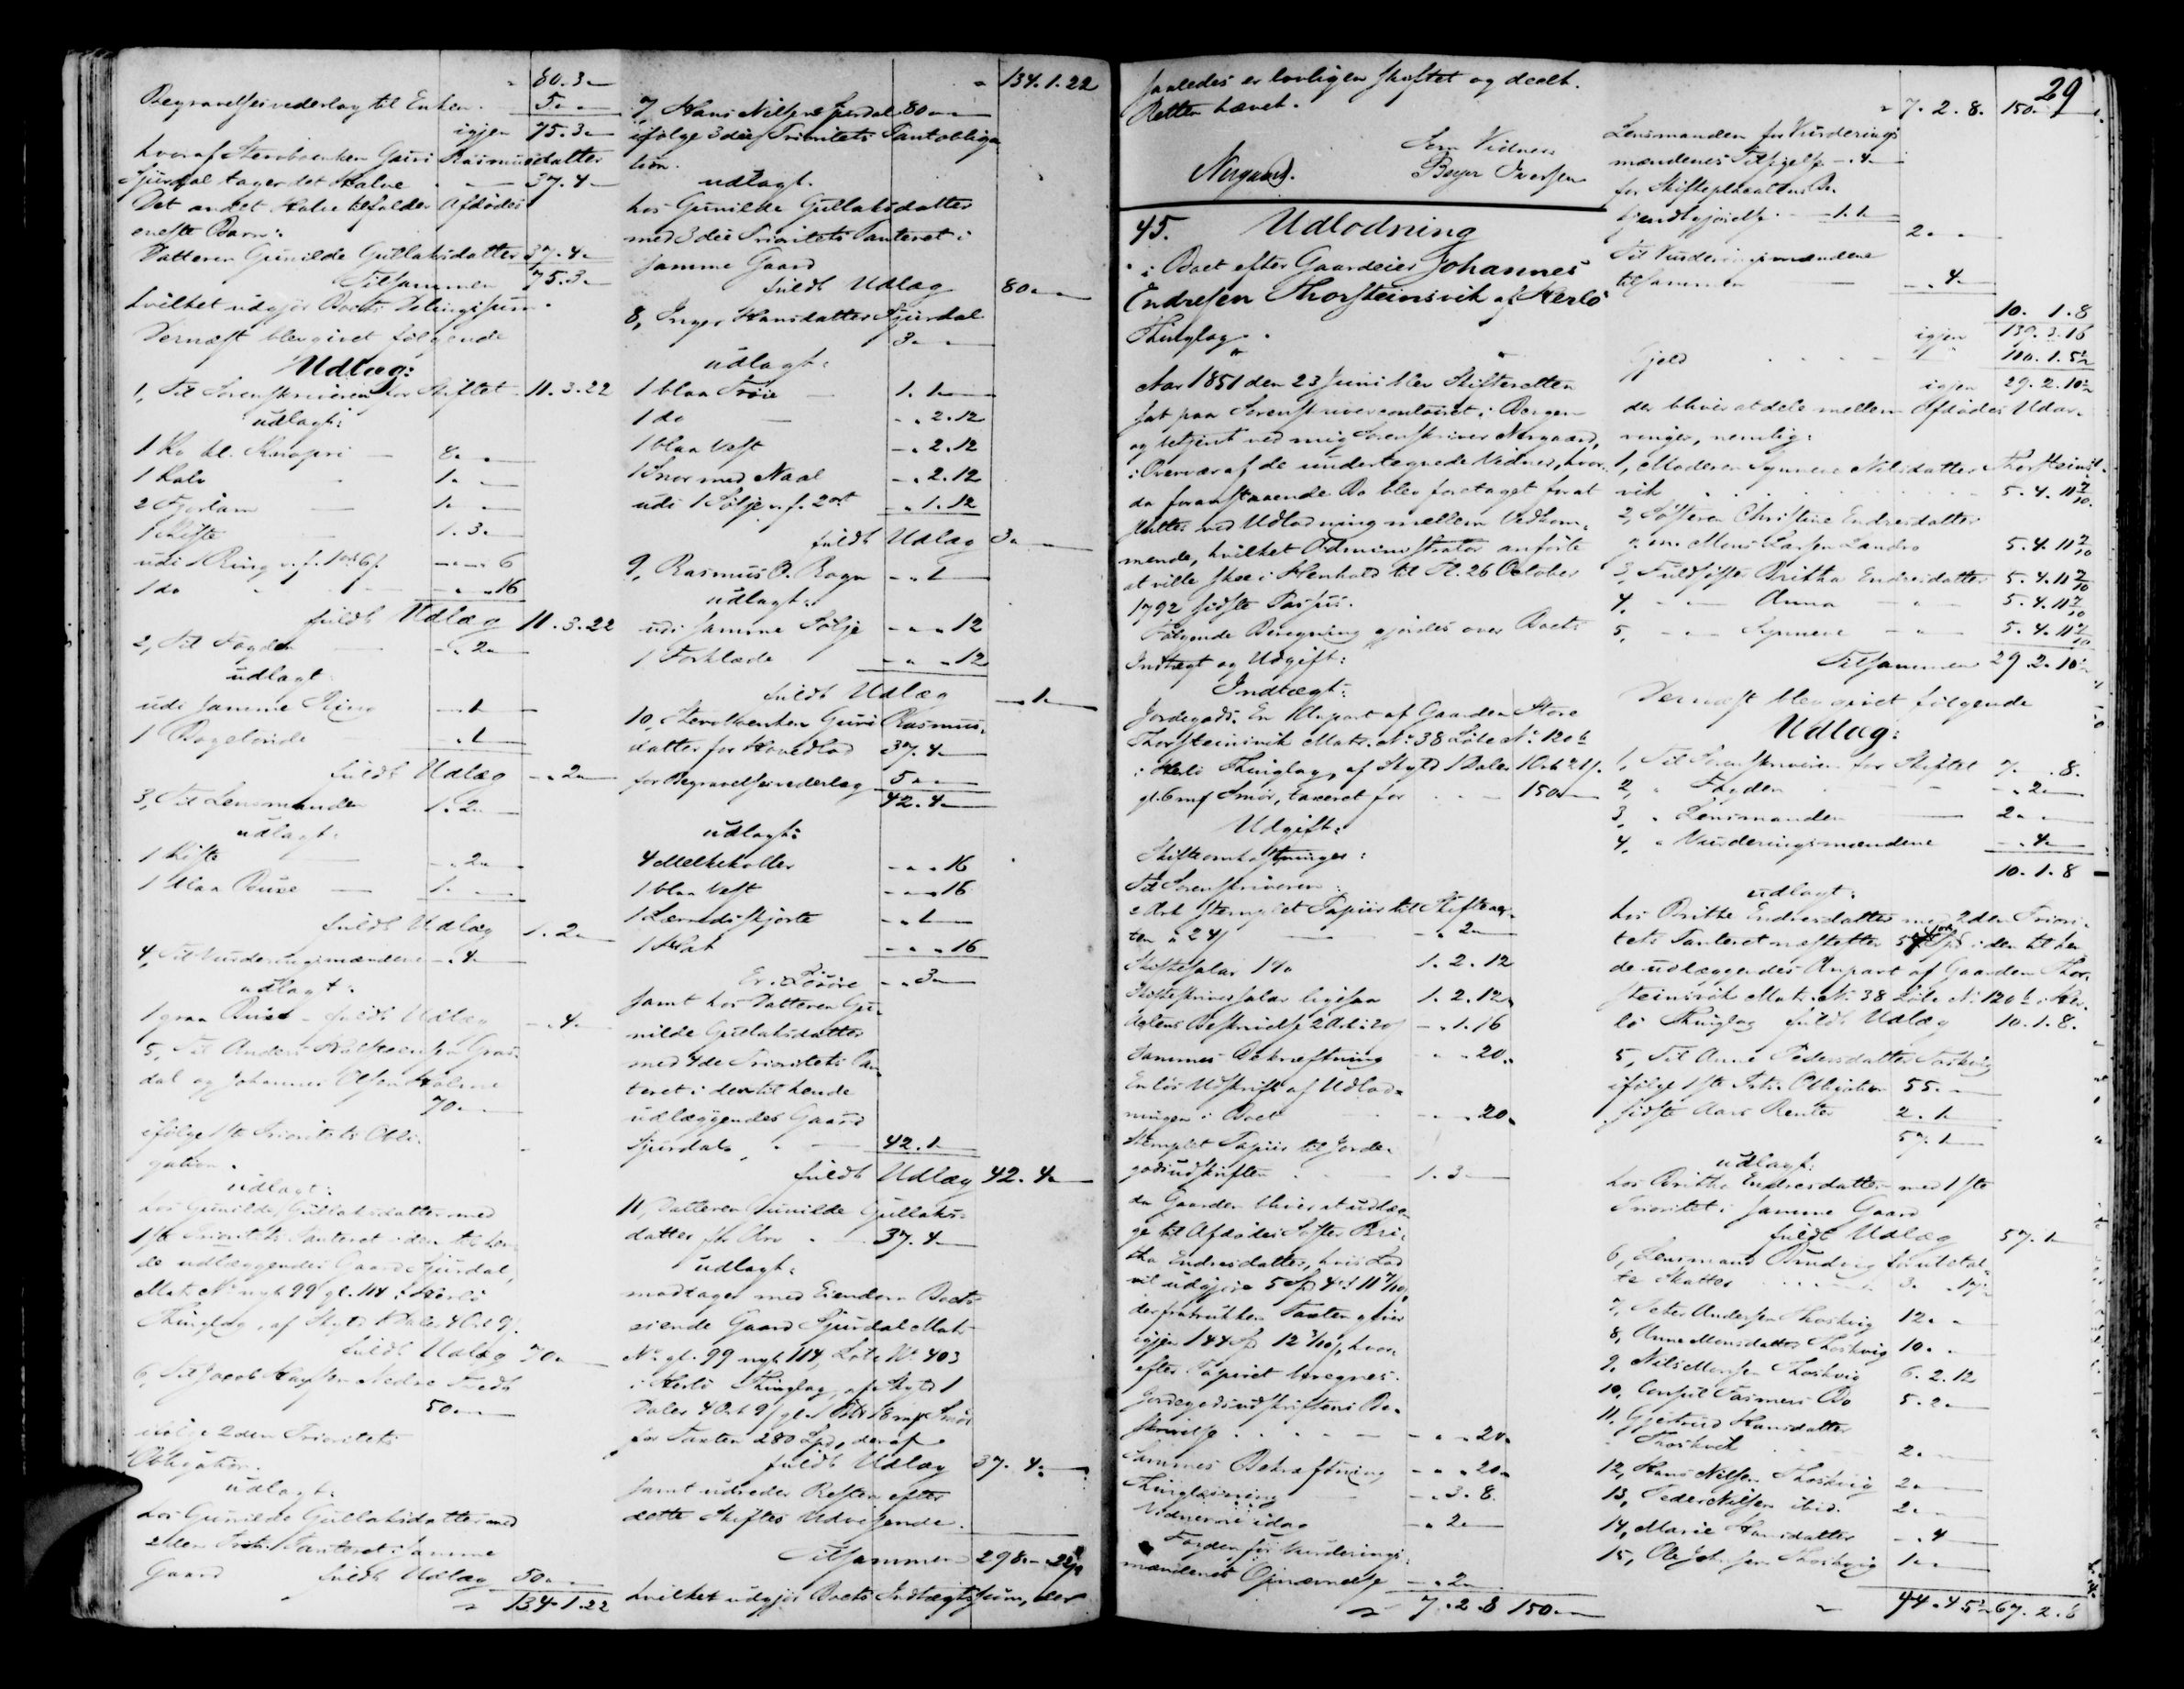 80. 3 "
Begravelsesvederlag til Enken. 5 " "
igjen 75. 3 "
hvoraf Stervboenken Guri Rasmusdatter
Sjurdal tager det Halve 37. 4 "
Det andet Halve tilfalder Afdødes
eneste Barn:
Datteren Gunilde Gullaksdatter 37. 4 "
Tilsammen 75. 3 "
hvilket udgjør Boets Delingssum.
Dernæst blev givet følgende
Udlæg:
1, Til Sorenskriveren for Skiftet 11. 3. 22
udlagt:
1 Ko kl. 4 " "
1 Kalv 1 " "
2 1 " "
1 Kiste 1. 3 "
udi 1 Ring " " 6
1 do " " 16
fuldt Udlæg 11. 3. 22
2, Til Fogden " 2 "
udlagt:
udi samme Ring " 1 "
1 " 1 "
fuldt Udlæg " 2 "
3, Til Lensmanden 1. 2 "
udlagt:
1 Kiste " 2 "
1 blaa Buxe 1 " "
fuldt Udlæg 1. 2 "
4, Til Vurderingsmændene " 4 "
udlagt:
1 graa Buxe fuldt Udlæg " 4 "
5, Til Anders
dal og Johannes Olsen
70 " "
ifølge 1ste Prioritets Obli-
gation.
udlagt:
hos Gunilde Gullaksdatter med
1ste Prioritets Panteret i den til hen-
de udlæggendes Gaard Sjurdal,
Mat. No nyt 99 gl. 114 i Herlø
Thinglag, af Skyld 1 Daler 4 Ort 9 s.
fuldt Udlæg 70 " "
6, Til Jacob
50 " "
ifølge 2den Prioritets
Obligation.
udlagt:
hos Gunilde Gullaksdatter med
2den Prts. Panteret i samme
Gaard fuldt Udlæg 50 " "
134. 1. 22
134. 1. 22
7, Hans Nilsen Sjurdal 80 " "
ifølge 3die Prioritets Pantobliga-
tion.
udlagt.
hos Gunilde Gullaksdatter
med 3die Prioritets Panteret i
samme Gaard
fuldt Udlæg 80 " "
8, Inger Hansdatter Sjurdal
3 " "
udlagt:
1 blaa Trøie 1. 1 "
1 do " 2. 12
1 blaa Vest " 2. 12
1 Snor med Naal " 2. 12
udi 1 Sølje v. f. 2 ort " 1. 12
fuldt Udlæg 3 " "
9, Rasmus O. Rogn " 1 "
udlagt:
udi samme Sølje " " 12
1 Forklæde " " 12
fuldt Udlæg " 1 "
10, Stervboenken Guri Rasmus-
datter for Hovedlod 37. 4 "
for Begravelsesvederlag 5 " "
42. 4 "
udlagt:
4 Melkekoller " " 16
1 blaa Vest " " 16
1 Lærredsskjorte " 1 "
1 Hat " " 16
Er i Løsøre " 3 "
samt hos Datteren Gu-
nilde Gullaksdatter
med 4de Prioritets Pan-
teret i den til hende
udlæggendes Gaard
Sjurdal 42. 1 "
fuldt Udlæg 42. 4 "
11, Datteren Gunilde Gullaks-
datter for Arv 37. 4 "
udlagt:
modtager med Eiendom Boets
eiende Gaard Sjurdal Matr
No gl. 99 nyt 114, Løbe No 403
i Herlø Thinglag, af Skyld 1
Daler 4 Ort 9 s gl. 18 mk Smør
for Taxten 280 Spd, deraf
fuldt Udlæg 37. 4 "
samt udreder Resten efter
dette Skiftes Udvisende.
Tilsammen 298 " 22
hvilket udgjør Boets Indtægtssum, der
saaledes er lovligen skiftet og deelt.
Retten hævet.
Som Vidner
Nergaard. Beyer Iversen
29
45. Udlodning
i Boet efter Gaardeier Johannes
Endresen Thorsteinsvik af Herlø
Thinglag.
Aar 1851 den 23 Juni blev Skifteretten
sat paa Sorenskrivercontoiret i Bergen
og betjent ved mig Sorenskriver Nergaard,
i Overvær af de undertegnede Vidner, hvor
da foranstaaende Bo blev foretaget for at
sluttes ved Udlodning mellem Vedkom-
mende, hvilket Administrator anførte
at ville skee i Henhold til Pl. 26 October
1792 sidste Passus.
Følgende Beregning gjordes over Boets
Indtægt og Udgift:
Indtægt:
Jordegods. En Anpart af Gaarden Store
Thorsteinsvik Matr. No 38 Løbe No 120 b
i Herlø Thinglag, af Skyld 1 Daler 1 Ort 21 s.
gl. 6 mk Smør, taxeret for 150 " "
Udgift:
Skifteomkostninger:
Til Sorenskriveren:
2 Ark stemplet Papiir til Skifteac-
ten a 24 s " 2 "
Skiftesalar 1% 1. 2. 12
Skifteskriversalar ligesaa 1. 2. 12
Actens Beskrivelse 2 Ark a 20 s " 1. 16
Sammes Bekræftning " " 20
En løs Udskrift af Udlod-
ningen i Boet " " 20
Stemplet Papiir til Jorde-
godsudskriften 1. 3 "
da Gaarden bliver at udlæg-
ge til Afdødes Søster Bri-
tha Endresdatter, hvis Lod
vil udgjøre 5 Spd 4 ort 11 7/10,
der fratrukken Taxten giver
igjen 144 Sp 12 3/10 s, hvor-
efter Papiret beregnes.
Jordegodsudskriftens Be-
skrivelse " " 20
Sammes Bekræftning " " 20
Thinglæsning " 3. 8
Vidnerne idag " 2 "
Fogden for Vurderings-
mændenes Opnævnelse " 2 "
7. 2. 8 150 " "
7. 2. 8. 150 " "
Lensmanden for Vurderings-
mændenes Tilsigelse " 4 "
for Skifteplacatens Be-
kjendtgjørelse 1. 1 "
2 " "
Til Vurderingsmændene
tilsammen " 4 "
10. 1. 8
igjen 139. 3. 16
Gjeld 110. 1. 5½
igjen 29. 2. 10½
der bliver at dele mellem Afdødes Udar-
vinger, nemlig:
1, Moderen Synneve Nilsdatter Thorsteins-
vik 5. 4. 11 7/10
2, Søsteren Christine Endresdatter
g. m. Mons Larsen Landro 5. 4. 11 7/10
3, Fuldsøster Britha Endresdatter 5. 4. 11 7/10
4, " Anna " 5. 4. 11 7/10
5, " Synneve " 5. 4. 11 7/10
Tilsammen 29. 2. 10½
Dernæst blev givet følgende
Udlæg:
1, Til Sorenskriveren for Skiftet 7 " 8.
2, " Fogden " 2 "
3, " Lensmanden 2 " "
4, " Vurderingsmændene " 4 "
10. 1. 8
udlagt:
hos Brithe Endresdatter med 2den Priori-
tets Panteret næstefter 57 Spd i den til hen-
de udlæggendes Anpart af Gaarden Thor-
steinsvik Matr. No 38 Løbe No 120 b i Her-
lø Thinglag fuldt Udlæg 10. 1. 8.
5, Til Anne Pedersdatter
ifølge 1ste Prts. Obligation 55 " "
sidste Aars Renter 2. 1 "
57. 1 "
udlagt:
hos Brithe Endresdatter med 1ste
Prioritet i samme Gaard
fuldt Udlæg 57. 1 "
6, Lensmand Brudvig for ubetal-
te Skatter 3.
7, Peter Andersen Thoskvig 12 " "
8, Anne Monsdatter Thoskvig 10 " "
9, Nils Monsen Thoskvig 6. 2. 12
10, Consul Fasmers Bo 5. 2 "
11, Gjertrud Hansdatter
Thoskvik 2 " "
12, Hans Nilsen Thoskvig 2 " "
13, Peder Nilsen ibid. 2 " "
14, Marie Hansdatter " 4 "
15, Ole Johnsen Thoskvig 1 " "
44. 4. 5½ 67. 2. 8